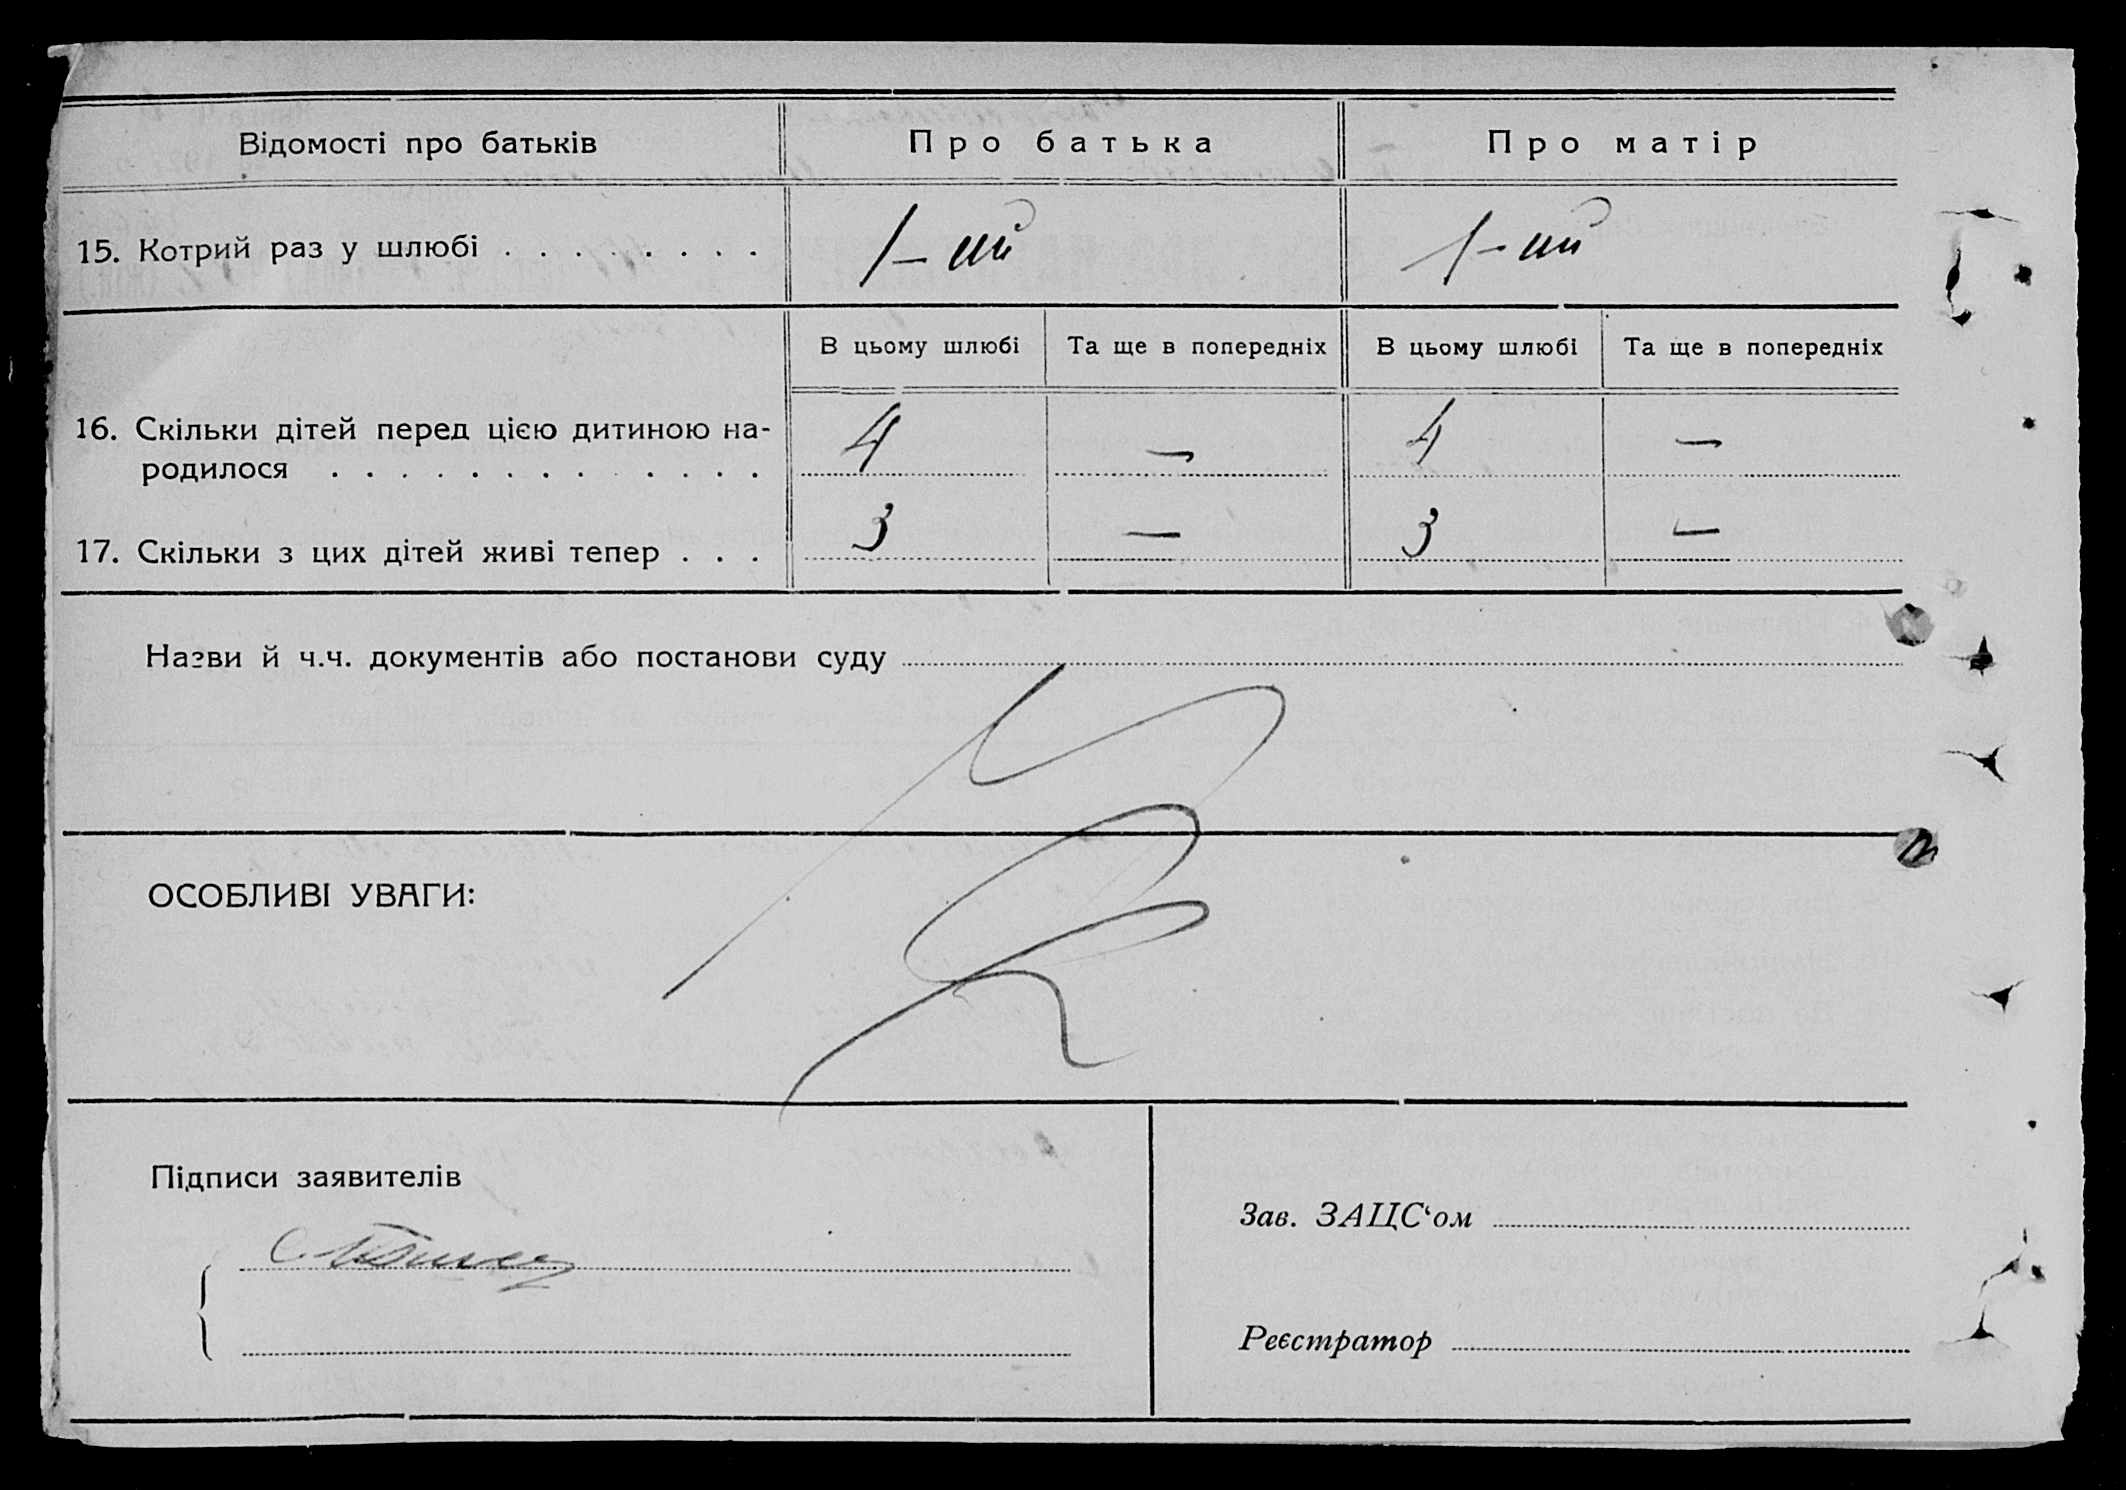 Відомості про батьків Про батька Про матір
15. Котрий раз у шлюбі . . . . . . . . 1-ий 1-ий
В цьому шлюбі Та ще в попередніх В цьому шлюбі Та ще в попередніх
16. Скільки дітей перед цією дитиною на-
родилося . . . . . . . . . . . . 4 — 4 —
17. Скільки з цих дітей живі тепер . . . 3 — 3 —
Назви й ч.ч. документів або постанови суду
ОСОБЛИВІ УВАГИ:
Підписи заявителів
Зав. ЗАЦС‘ом
Реєстратор